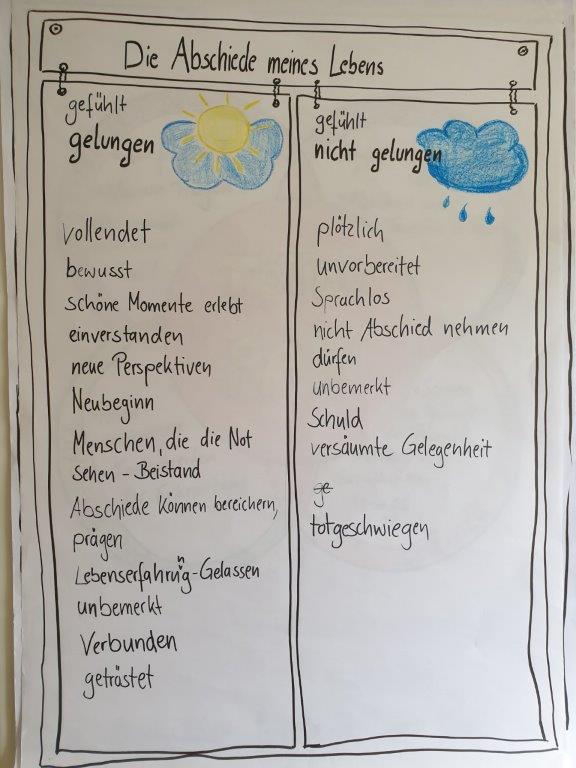 Die Abschiede meines Lebens
gefühlt
gelungen
vollendet
bewusst
schöne Momente erlebt
einverstanden
neue Perspektiven
Neubeginn
Menschen, die die Not
sehen - Beistand
Abschiede können bereichern,
prägen
Lebenserfahrung-Gelassen
unbemerkt
Verbunden
getröstet
gefühlt
nicht gelungen
plötzlich
unvorbereitet
Sprachlos
nicht Abschied nehmen
dürfen
unbemerkt
Schuld
versäumte Gelegenheit
ge
totgeschwiegen